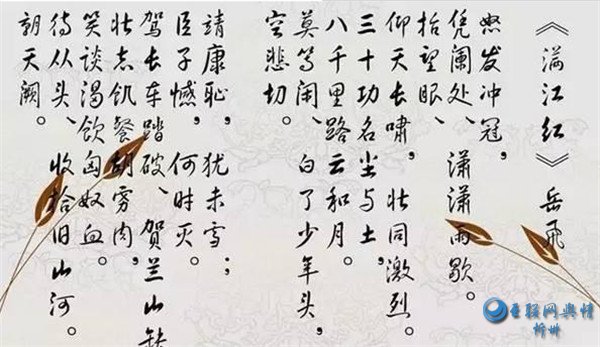 《满江红》岳飛
怒发冲冠,
凭阑处、潇潇雨歇。
抬望眼、
仰天长啸,壮同激烈。
三十功名尘与土,
八千里路云和月。
莫等闲、白了少年头,
空悲切。
靖康耻,犹未雪;
臣子憾,何时灭。
驾长车踏破、贺兰山缺
壮志饥餐胡虏肉,
笑谈渴饮匈奴血。
待从头、收拾旧山河。
朝天阙。
互联网舆情
忻州